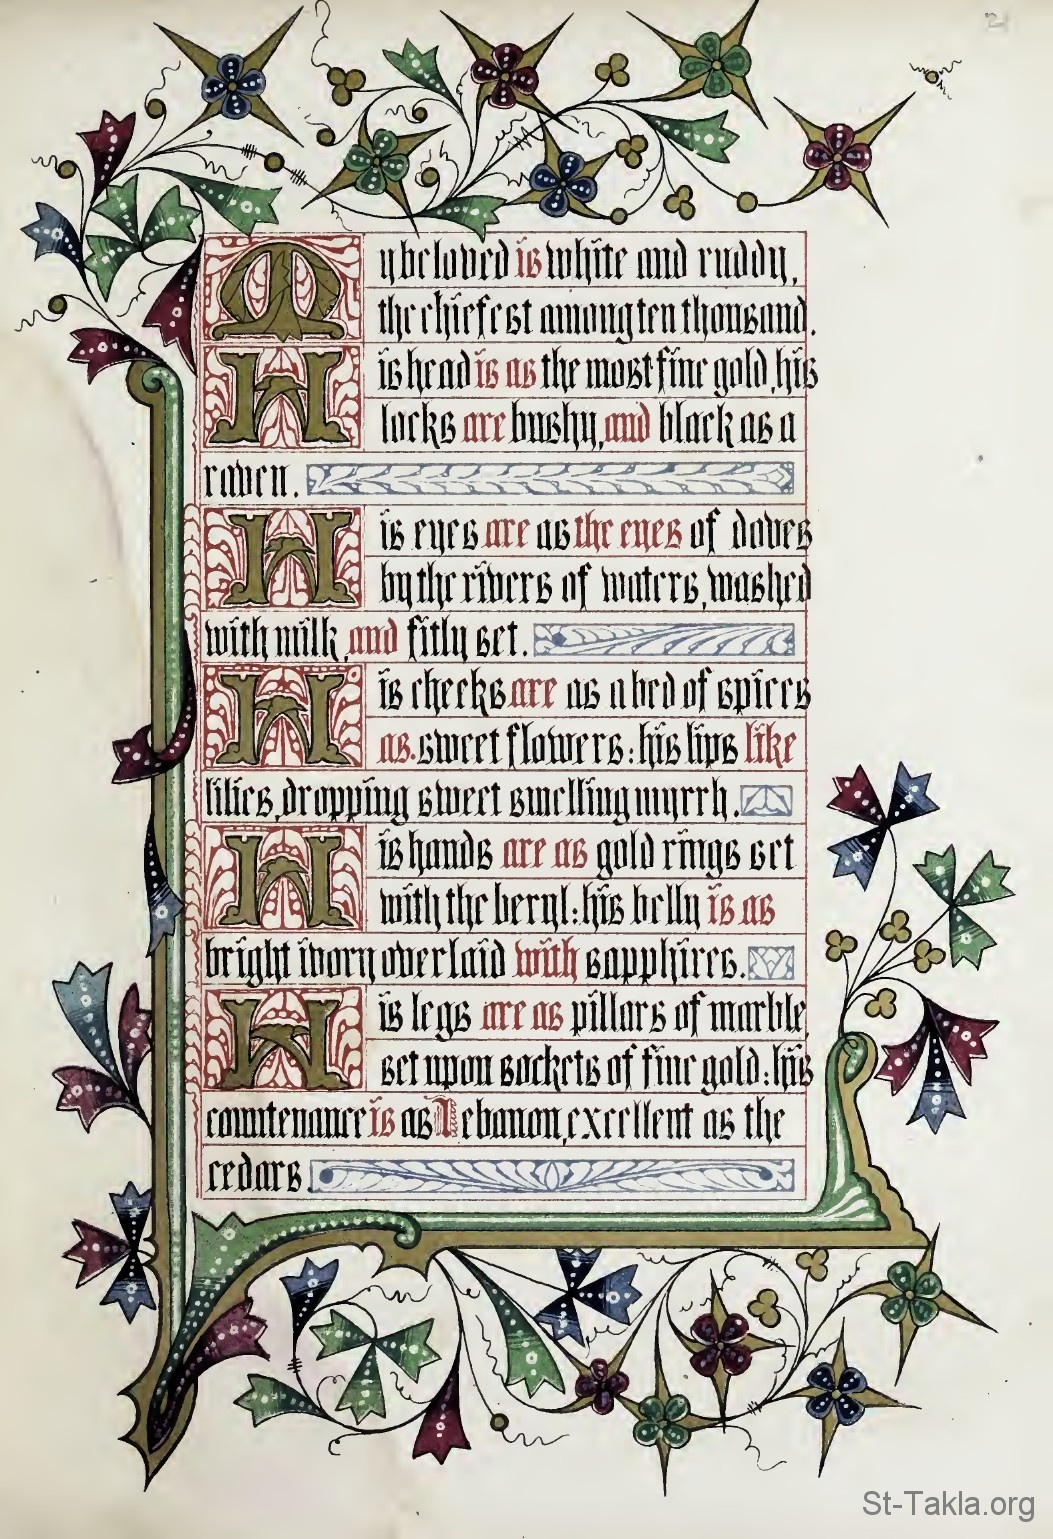 My beloved is white and ruddy,
the chiefest among ten thousand.
His head is as the most fine gold, his
locks are bushy, and black as a
raven.
His eyes are as the eyes of doves
by the rivers of waters, washed
with milk, and fitly set.
His cheeks are as a bed of spices
as sweet flowers: his lips like
lilies, dropping sweet smelling myrrh.
His hands are as gold rings set
with the beryl: his belly is as
bright ivory overlaid with sapphires.
His legs are as pillars of marble,
set upon sockets of fine gold: his
countenance is as Lebanon, excellent as the
cedars.
St-Takla.org